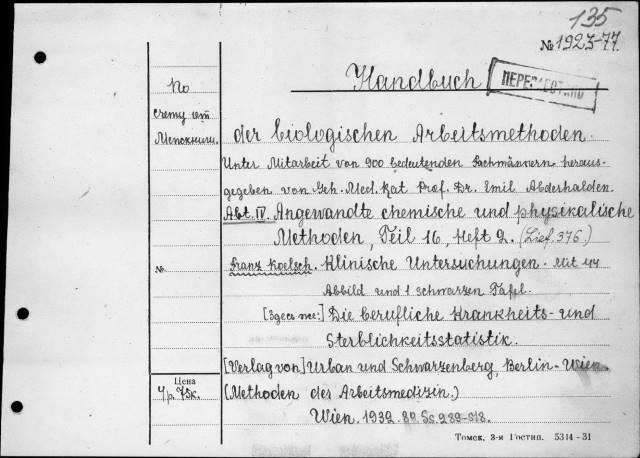 135
№ 1923-77.
Handbuch
По
счету от
der biologischen Arbeitsmethoden.
Unter Mitarbeit von 900 bedeutenden Fachmännern heraus-
gegeben von Geh. Med. Rat Prof. Dr. Emil Abderhalden.
Abt. IV. Angewandte chemische und physikalische
Methoden, Teil 16, Heft 2. (Lief. 376)
№ Franz Koelsch. Klinische Untersuchungen. Mit 44
Abbild und 1 schwarzen Tafel.
[Здесь же:] Die berufliche Krankheits- und
Sterblichkeitsstatistik.
[Verlag von] Urban und Schwarzenberg, Berlin-Wien.
Цена
4 р. 75 к.
(Methoden der Arbeitsmedizin.)
Wien. 1932. 8º. Ss. 289-518.
Томск, 3-я Гостип. 5314-31